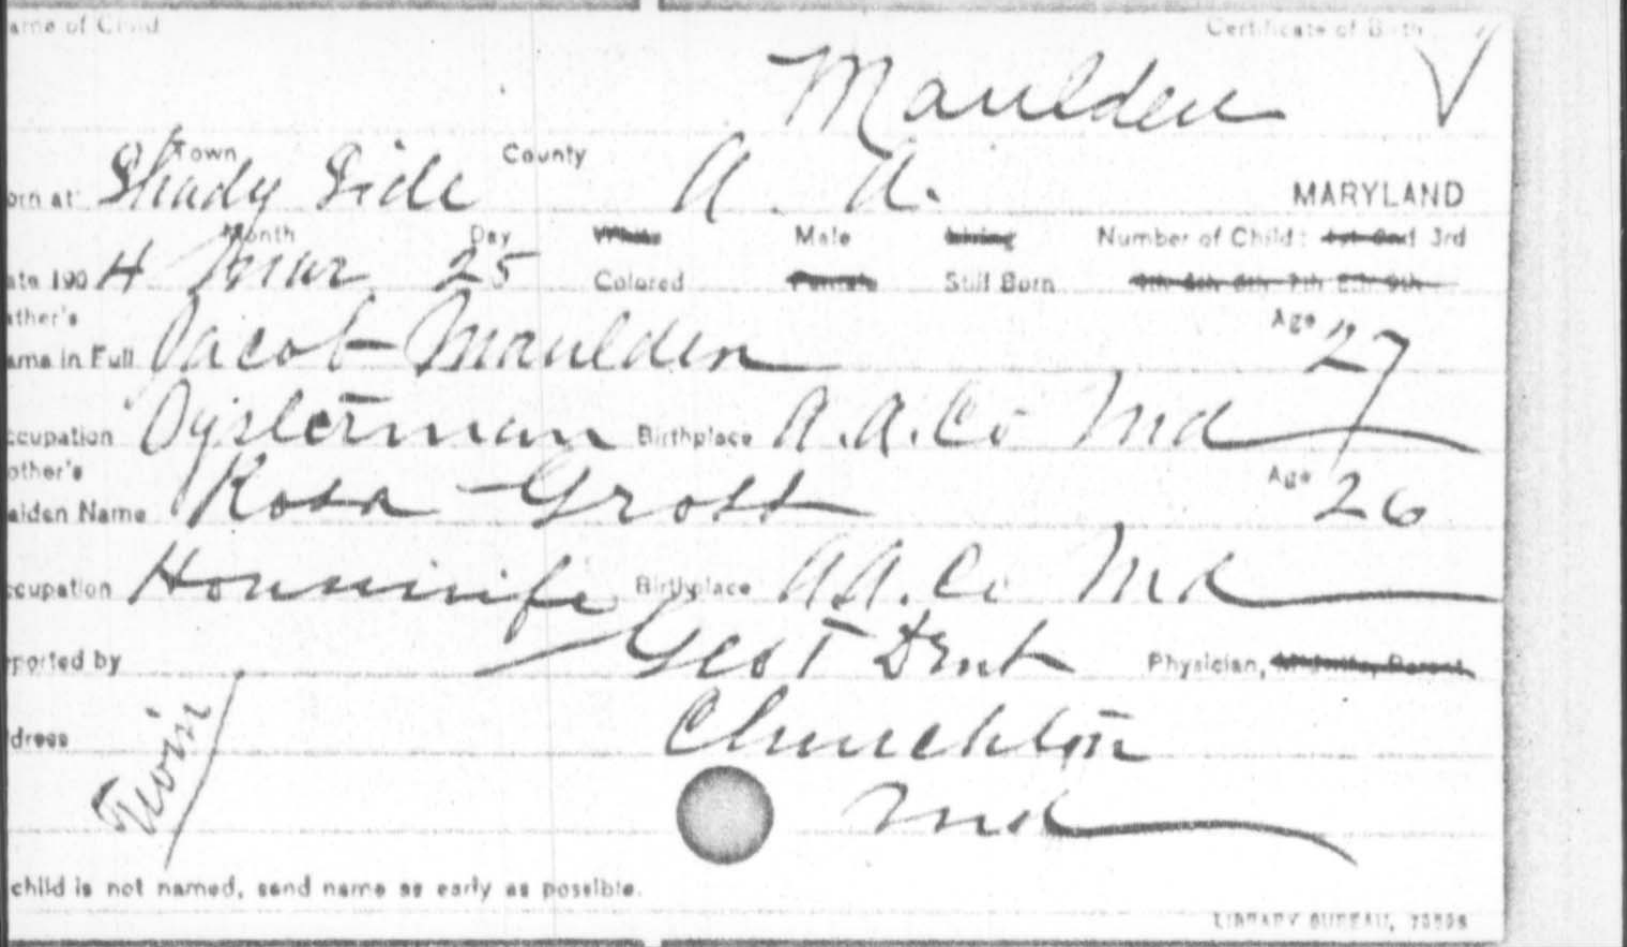 ame of Child Certificate of Birth
Maulden
Town County
orn at Shady Side A. A. MARYLAND
Month Day White Male Living Number of Child: 1st 2nd 3rd
ate 190 4 Mar 25 Colored Female Still Born 4th 5th 6th 7th 8th 9th
ather's Age
ame in Full Jacob Maulden 27
ccupation Oysterman Birthplace A.A.Co Md
other's Age
aiden Name Rosa Gross 26
ccupation Housewife Birthplace A.A.Co Md
ported by Geo T Dent Physician, Midwife, Parent
dress Churchton
Twin
Md
child is not named, send name as early as possible.
LIBRARY BUREAU,